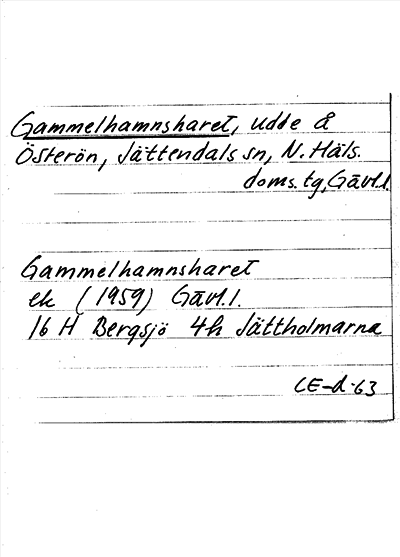 Gammelhamnsharet, udde å
Österön, Jättendals sn, N. Häls.
doms. tg, Gävl.l.
Gammelhamnsharet
ek (1959) Gävl.l.
16 H Bergsjö 4h Jättholmarna
CE-d-63